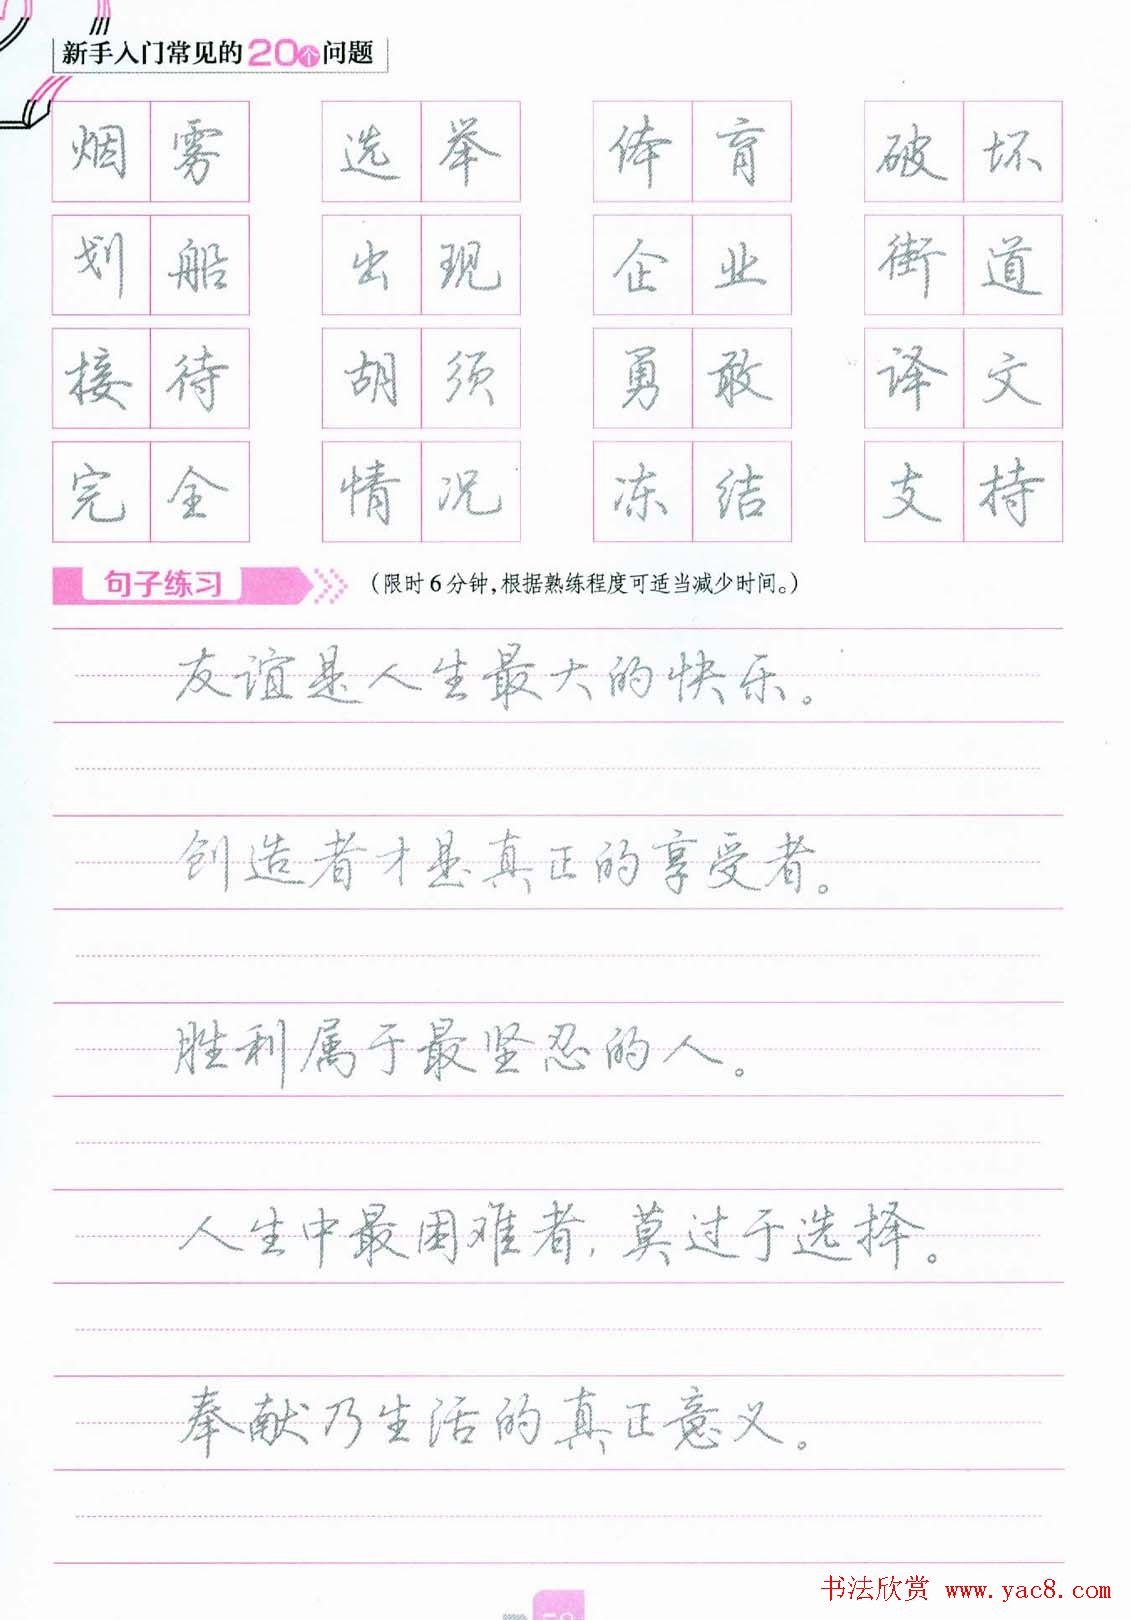 新手入门常见的20个问题
烟雾 选举 体育 破坏
划船 出现 企业 街道
接待 胡须 勇敢 译文
完全 情况 冻结 支持
句子练习 (限时6分钟,根据熟练程度可适当减少时间。)
友谊是人生最大的快乐。
创造者才是真正的享受者。
胜利属于最坚忍的人。
人生中最困难者,莫过于选择。
奉献乃生活的真正意义。
书法欣赏 www.yac8.com